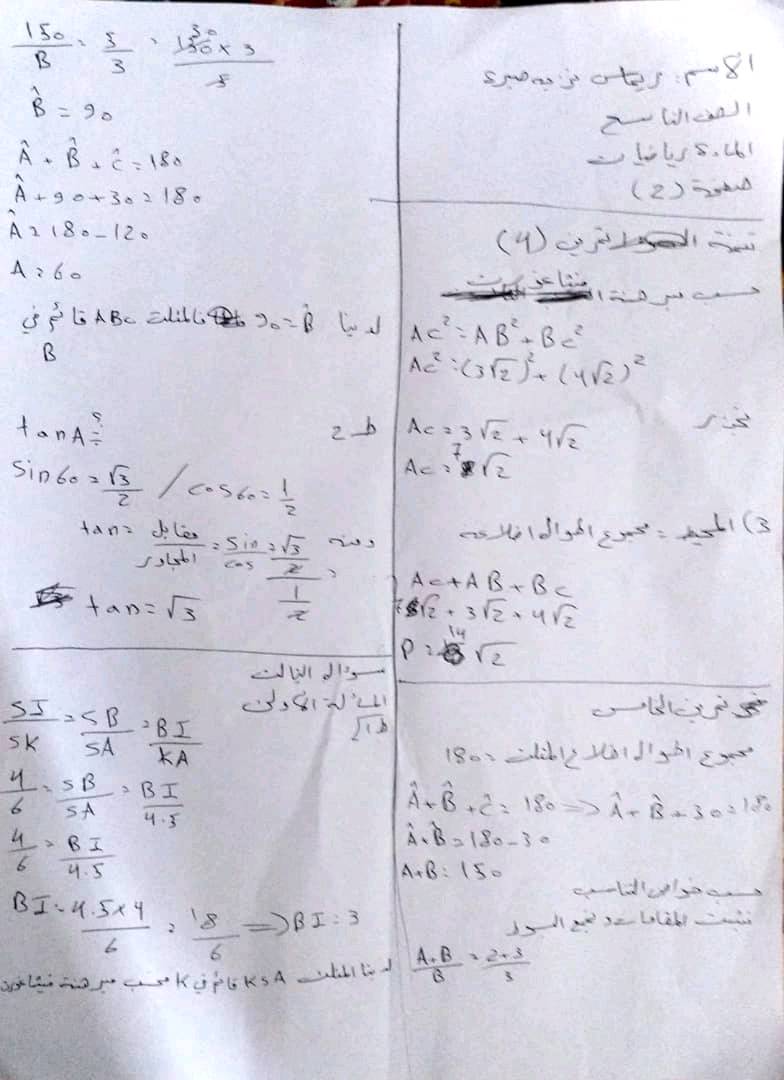 الاسم: ريماس نزيه صبري
الصف التاسع
المادة رياضيات
صفحة (2)
تتمة تمرين (4)
حسب مبرهنة فيثاغورث
AC² = AB² + BC²
AC² = (3√2)² + (4√2)²
نجذر
AC = 3√2 + 4√2
AC = 7√2
3) المحيط = مجموع اطوال اضلاعه
AC + AB + BC
7√2 + 3√2 + 4√2
P = 14√2
تمرين الخامس
مجموع اطوال اضلاع المثلث = 180
Â + B̂ + Ĉ = 180 => Â + B̂ + 30 = 180
Â + B̂ = 180 - 30
A + B = 150
حسب خواص التناسب
نثبت المقامات و نجمع البسوط
A+B/B = 2+3/3
150/B = 5/3 = 150 × 3/5
30
B̂ = 90
Â + B̂ + Ĉ = 180
Â + 90 + 30 = 180
Â = 180 - 120
A = 60
لدينا B̂ = 90 فالمثلث ABC قائم في
B
ط 2 tan A = ?
sin 60 = √3/2 / cos 60 = 1/2
ومنه tan = مقابل/المجاور = sin/cos = √3/2 / 1/2
tan = √3
سؤال الثالث
المسألة الأولى
ط1
SI/SK = SB/SA = BI/KA
4/6 = SB/SA = BI/4.5
4/6 = BI/4.5
BI = 4.5×4/6 = 18/6 => BI = 3
لدينا المثلث KSA قائم في K حسب مبرهنة فيثاغورث